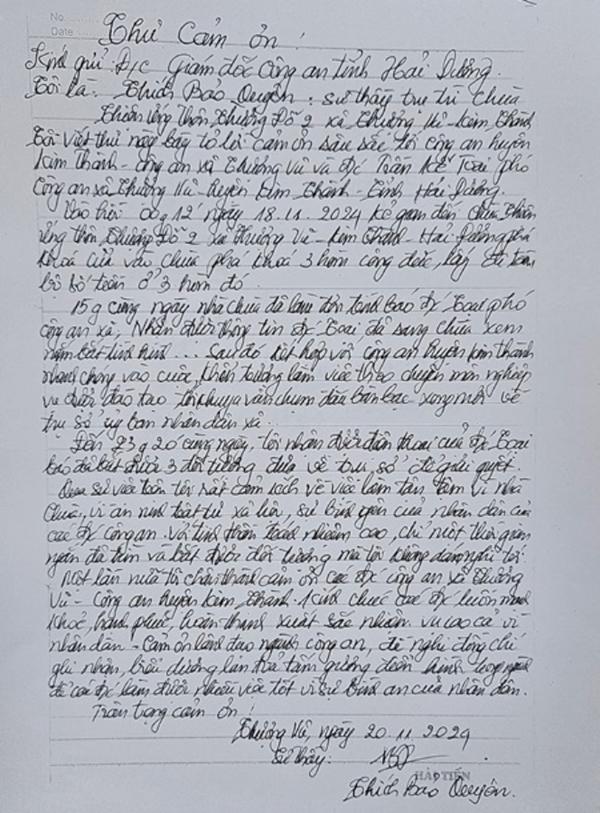 No
Date
Thư Cảm ơn !
Kính gửi Đ/c Giám đốc Công an tỉnh Hải Dương.
Tôi là: Thích Bảo Quyên: sư thầy trụ trì Chùa
Thiên ứng thôn Thượng Đỗ 2 xã Thượng Vũ - Kim Thành
Tôi viết thư này bày tỏ lời cảm ơn sâu sắc tới công an huyện
Kim Thành - công an xã Thượng Vũ và đ/c Trần Kế Toại phó
Công an xã Thượng Vũ huyện Kim Thành - Tỉnh Hải Dương.
Vào hồi 00g 12' ngày 18.11.2024 kẻ gian đến Chùa Thiên
ứng thôn Thượng Đỗ 2 xã Thượng Vũ - Kim Thành - Hải Dương phá
khoá cửa vào chùa phá khoá 3 hòm công đức, lấy đi toàn
bộ số tiền ở 3 hòm đó.
15g cùng ngày nhà chùa đã làm đơn trình báo đ/c Toại phó
công an xã, Nhận được thông tin đ/c Toại đã sang chùa xem
nắm bắt tình hình... Sau đó kết hợp với công an huyện Kim Thành
nhanh chóng vào cuộc, khẩn trương làm việc theo chuyên môn nghiệp
vụ được đào tạo
trụ sở uỷ ban nhân dân xã.
Đến 23g20 cùng ngày, tôi nhận được điện thoại của đ/c Toại
báo đã bắt được 3 đối tượng đưa về trụ sở để giải quyết.
Qua sự việc trên tôi rất cảm kích về việc làm tận tâm vì nhà
Chùa, vì an ninh trật tự xã hội, sự bình yên của nhân dân của
các đ/c công an. Với tinh thần trách nhiệm cao, chỉ một thời gian
ngắn đã tìm và bắt được đối tượng mà tôi không dám nghĩ tới.
Một lần nữa tôi chân thành cảm ơn các đ/c công an xã Thượng
Vũ - Công an huyện Kim Thành. Kính chúc các đ/c luôn mạnh
khoẻ, hạnh phúc, hoàn thành xuất sắc nhiệm vụ cao cả vì
nhân dân - Cảm ơn lãnh đạo ngành công an, đề nghị đồng chí
ghi nhận, biểu dương lan toả tấm gương
để các đ/c làm được nhiều việc tốt vì sự bình an của nhân dân.
Trân trọng cảm ơn !
Thượng Vũ, ngày 20.11.2024
Sư thầy:
HẢI TIẾN
Thích Bảo Quyên.